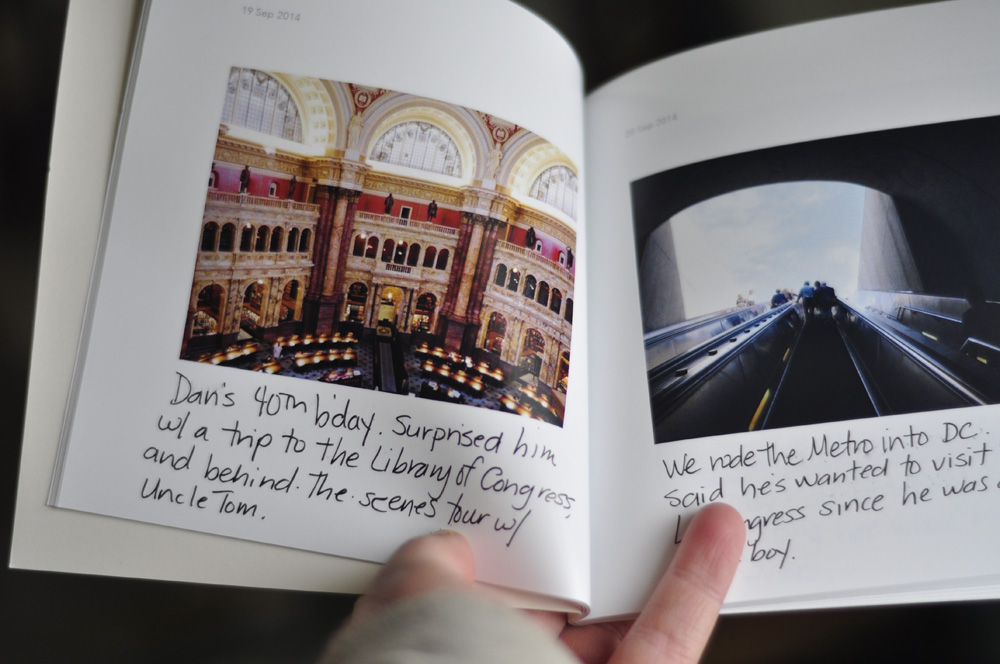 19 Sep 2014
Dan's 40th b'day. Surprised him
w/ a trip to the Library of Congress,
and behind. the. scenes tour w/
Uncle Tom.
20 Sep 2014
We rode the Metro into DC.
said he's wanted to visit
ngress since he was a
boy.